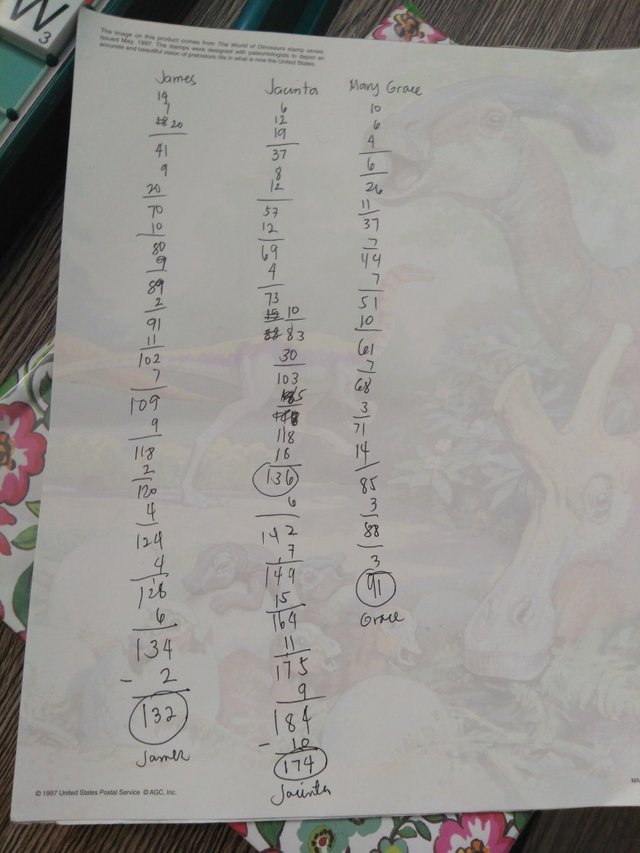 W
3
The image on this product comes from The World of Dinosaurs stamp series,
issued May, 1997. The stamps were designed with paleontologists to depict an
accurate and beautiful vision of prehistoric life in what is now the United States.
James
14
7
18 20
41
9
20
70
10
80
9
89
2
91
11
102
7
109
9
118
2
120
4
124
4
128
6
134
- 2
132
James
Jacinta
6
12
19
37
8
12
57
12
69
4
73
15 10
88 83
30
103
15
118
18
136
6
142
7
149
15
164
11
175
9
184
- 10
174
Jacinta
Mary Grace
10
6
4
6
26
11
37
7
44
7
51
10
61
7
68
3
71
14
85
3
88
3
91
Grace
© 1997 United States Postal Service © AGC, Inc.
MA